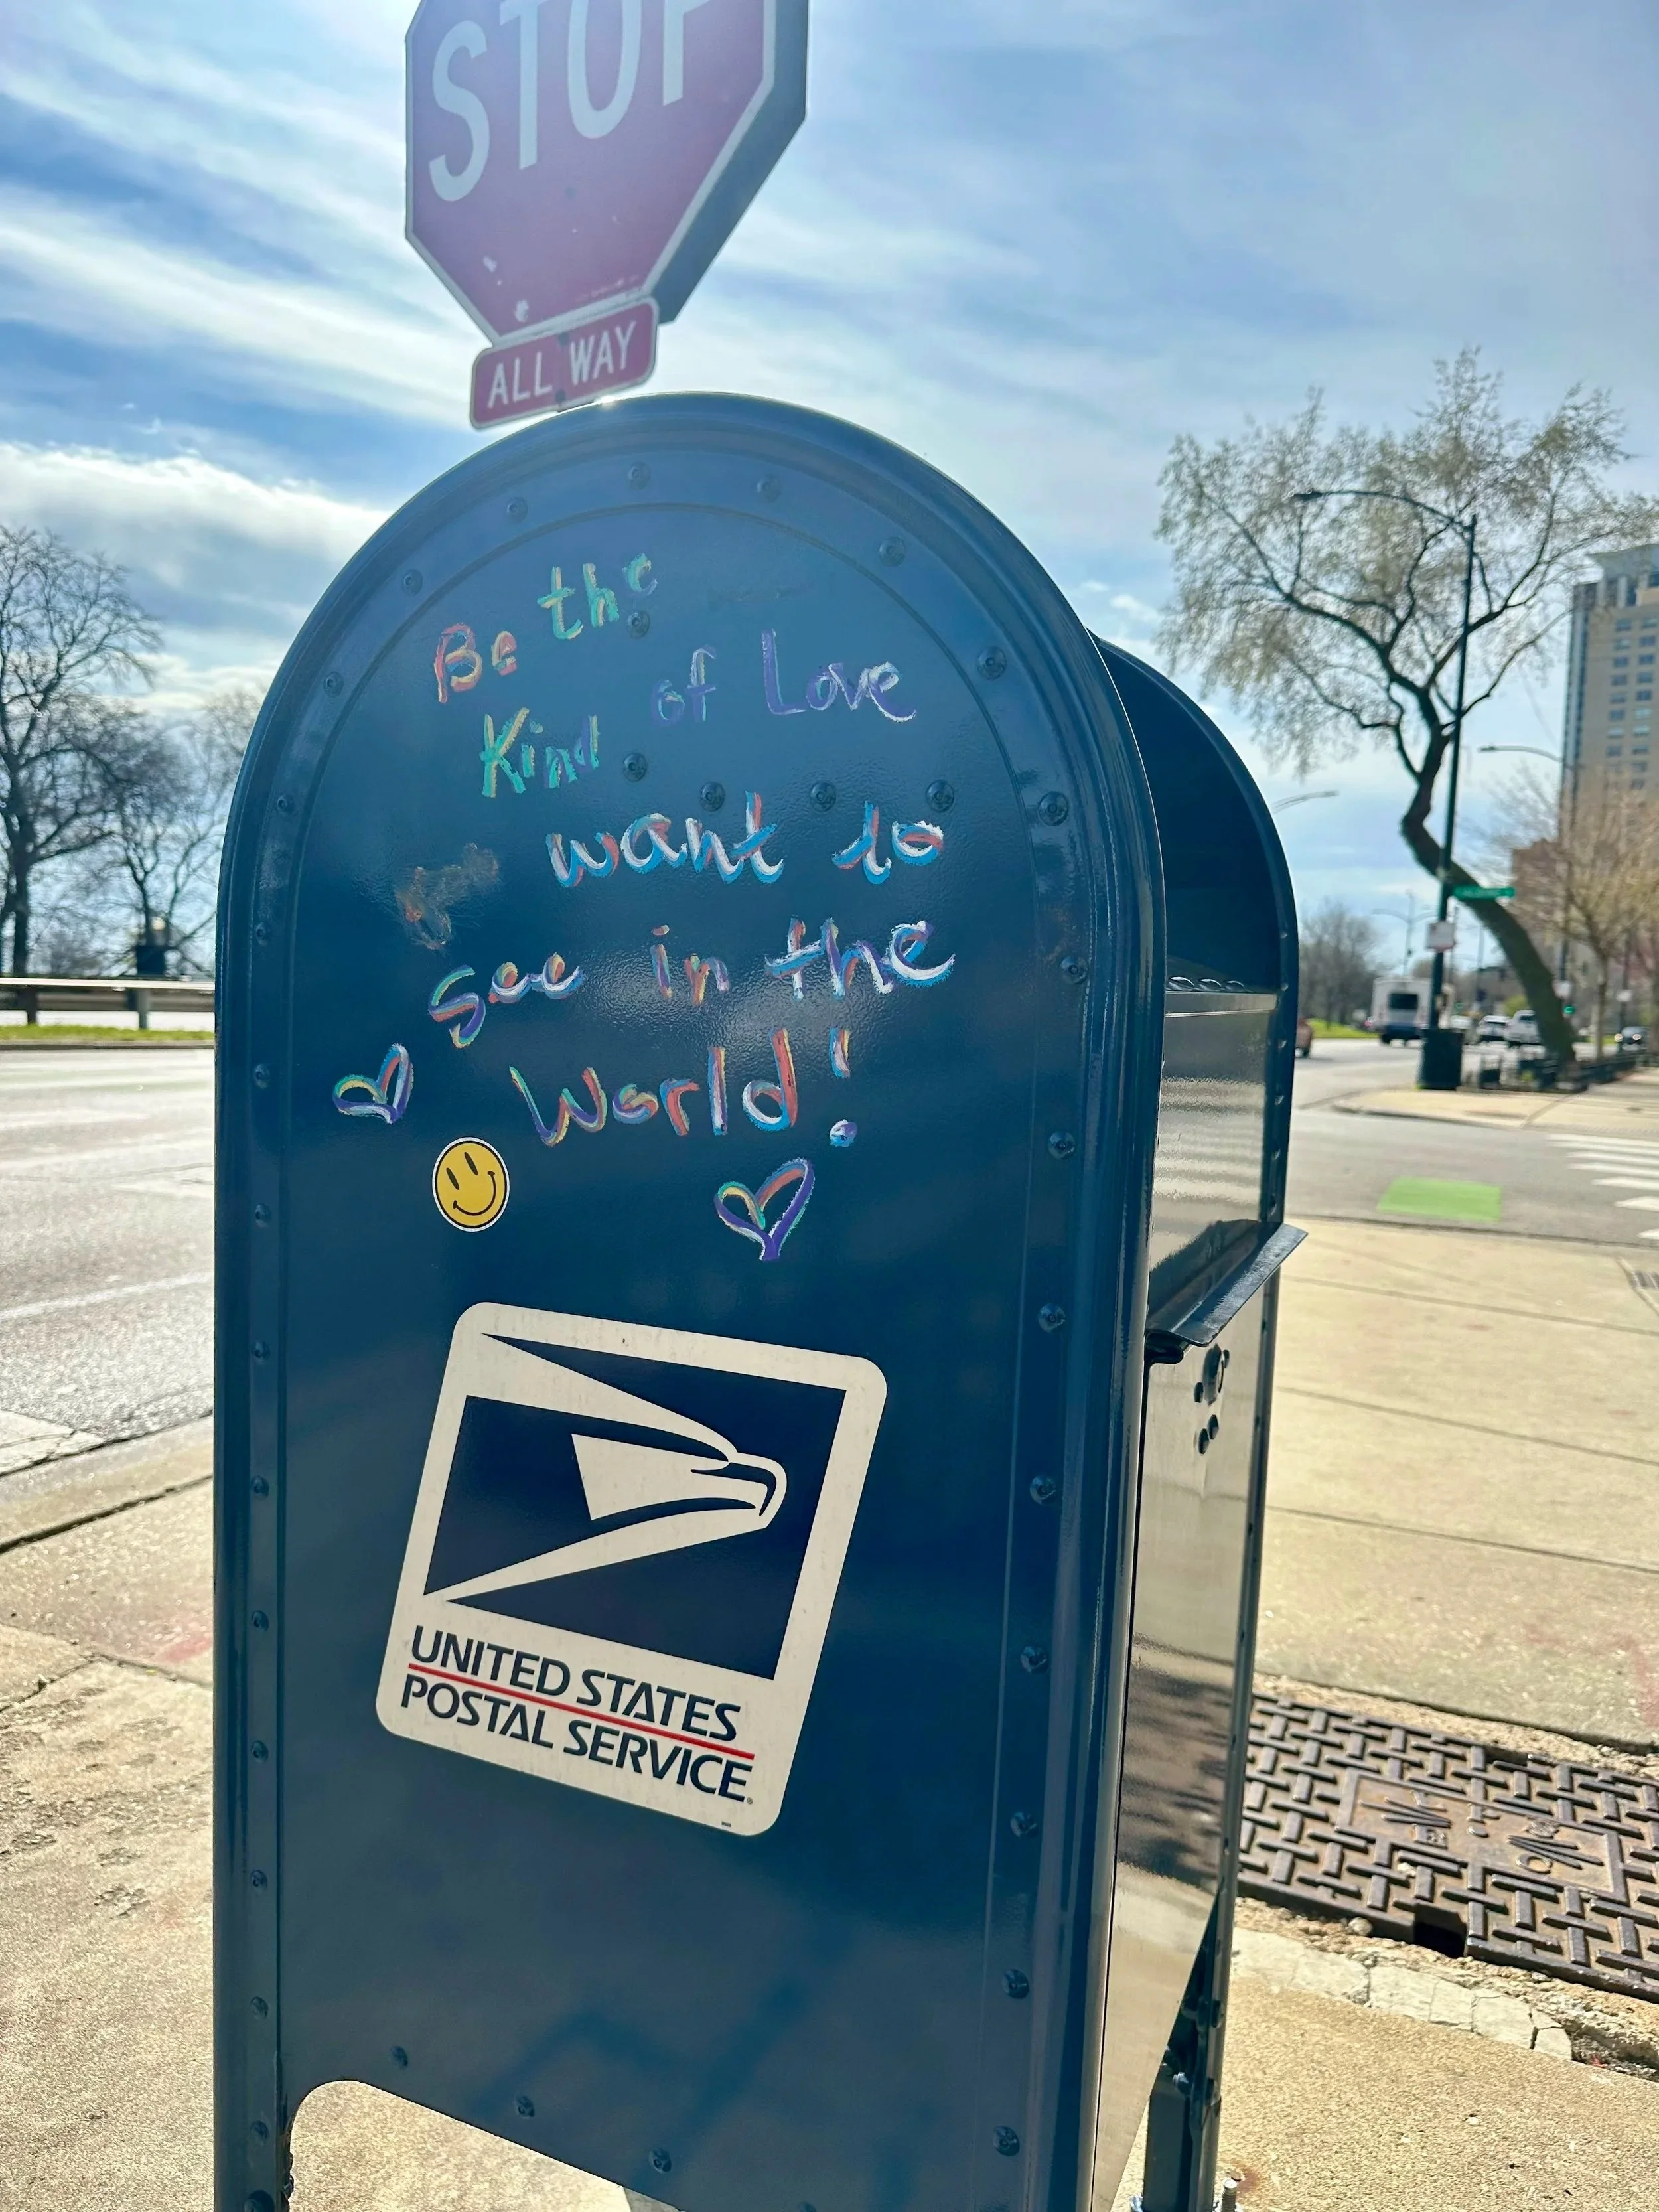 STOP
ALL WAY
Be the
Kind of Love
want to
See in the
World!
UNITED STATES
POSTAL SERVICE